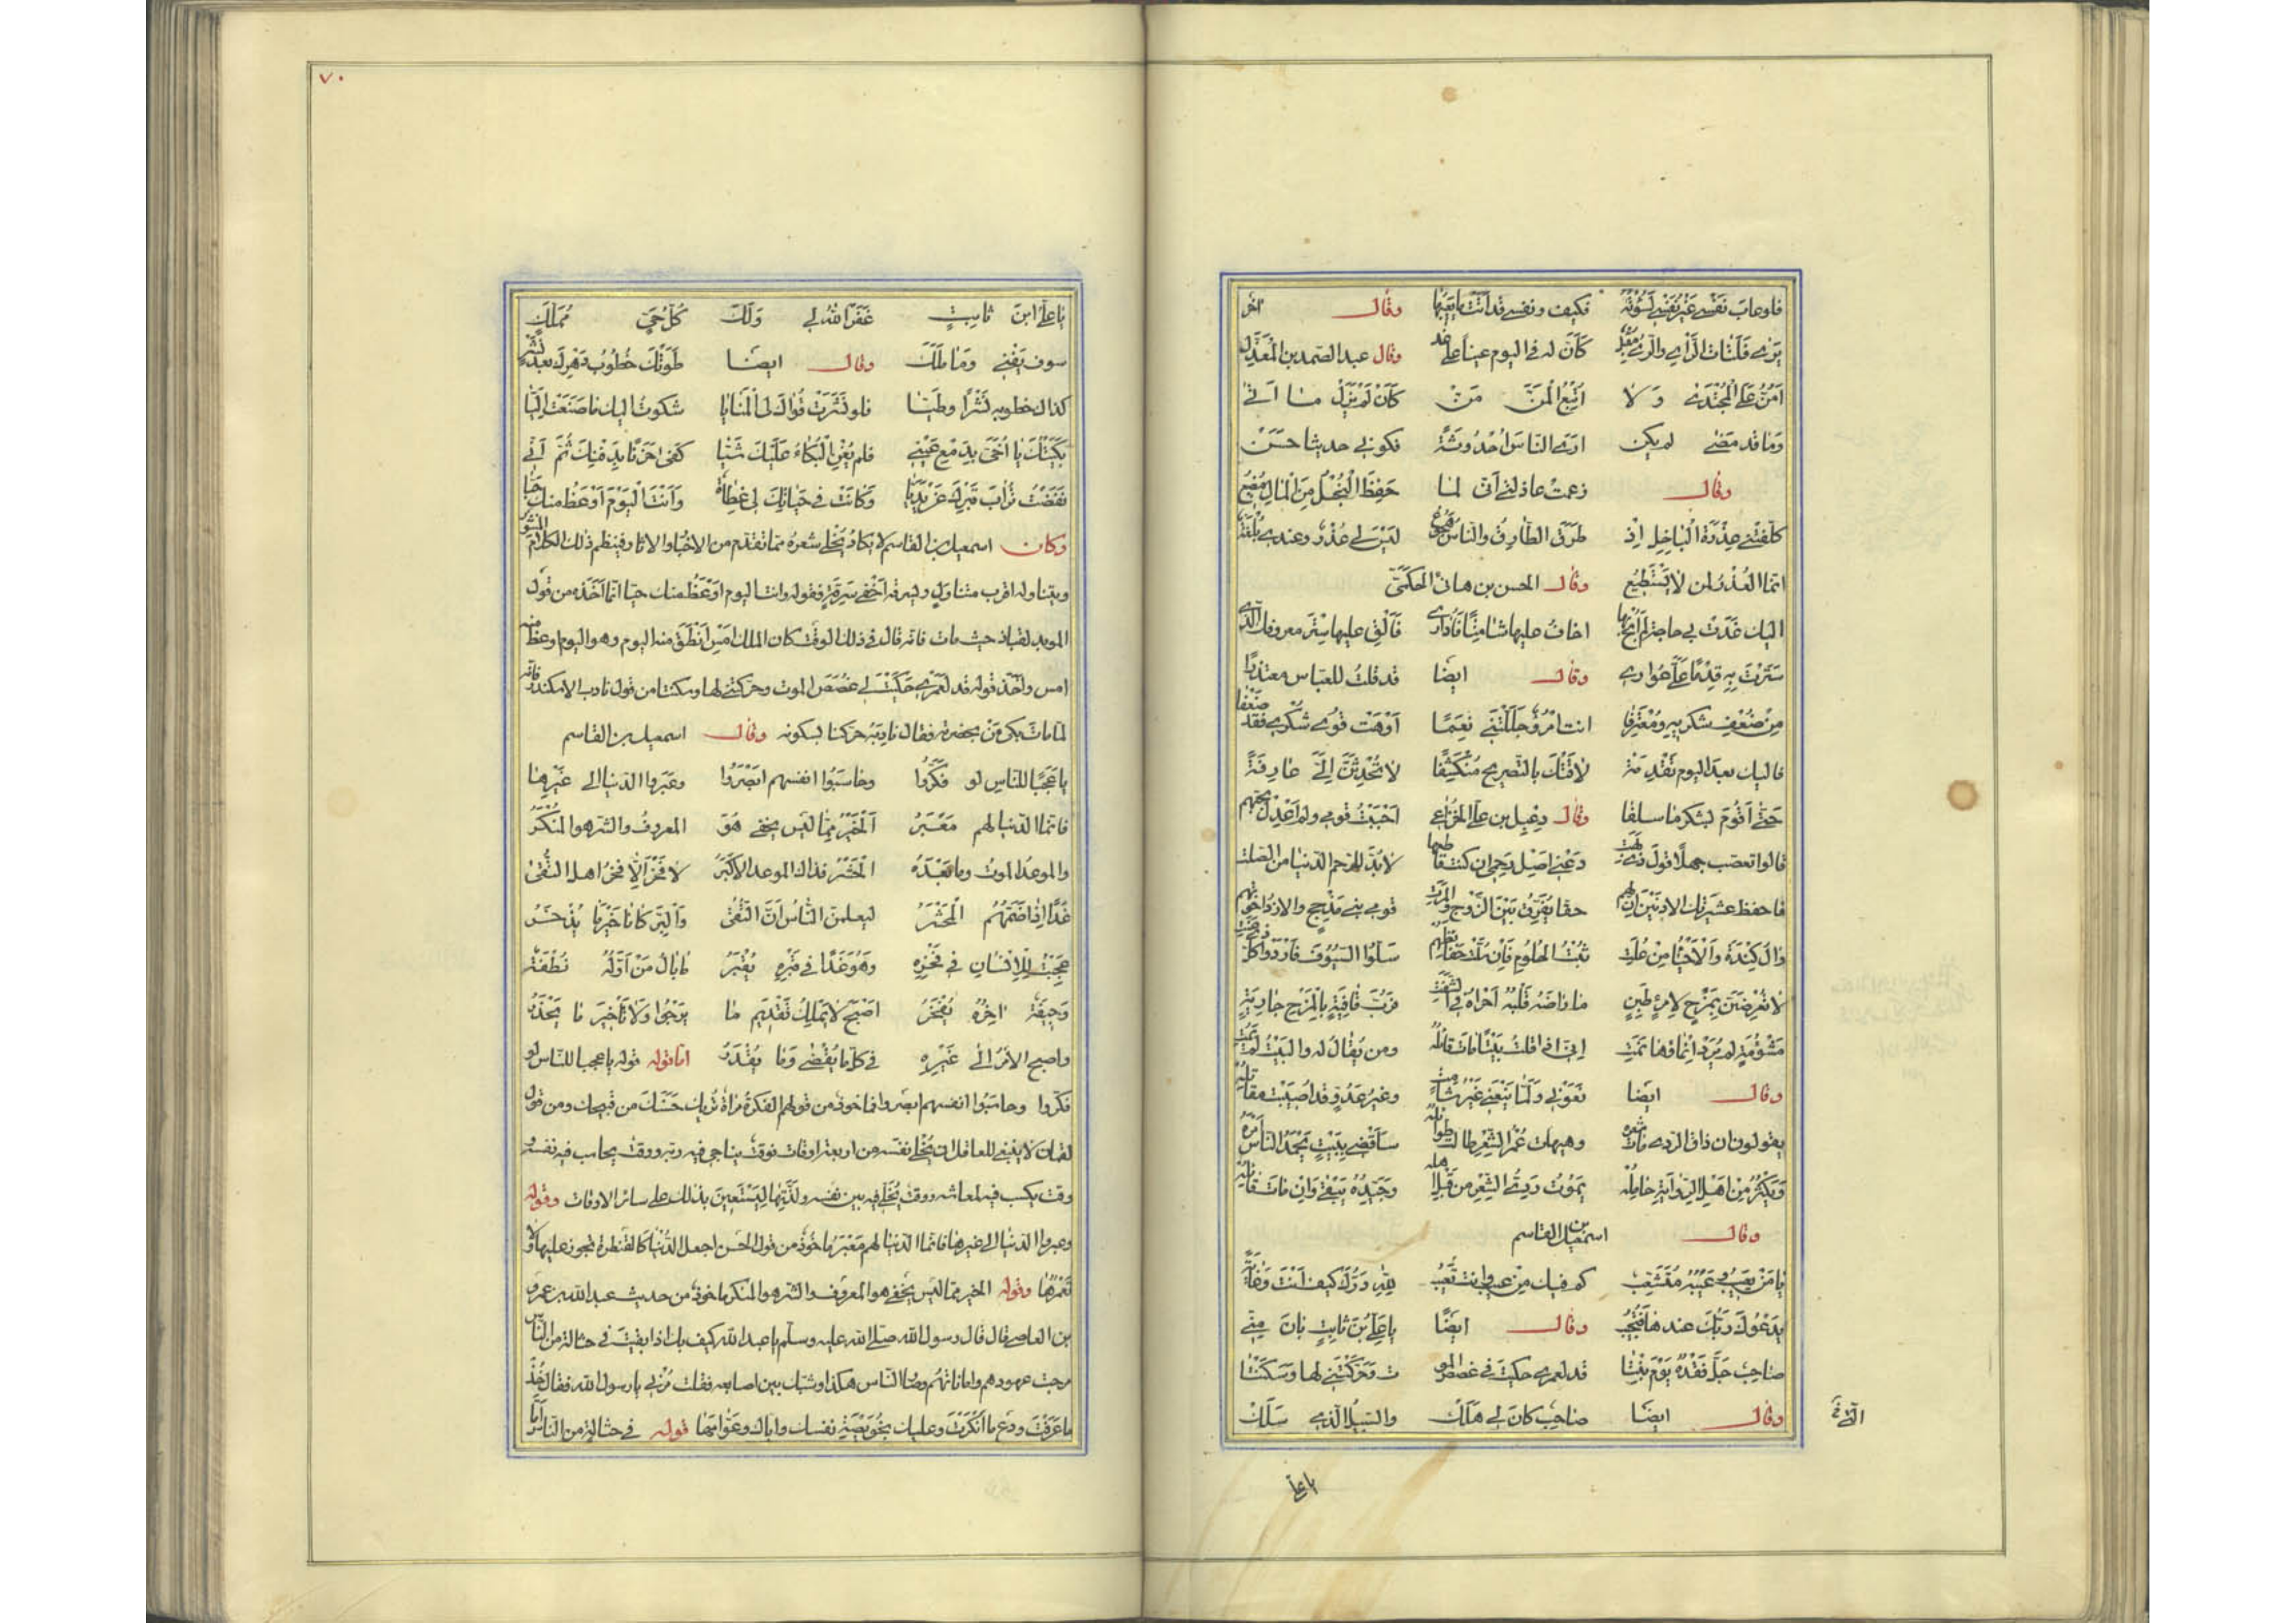 فلو عاب نفسي غير نفسي لسؤته فكيف ونفسي قد أتت ما يعيبها وقال آخر
يرى فلتات الرأي والرأي مقبل كأن له في اليوم عينا على غد وقال عبد الصمد بن المعذل
أمن على المجتدي ولا أتبع المن من كأن لم يزل ما أتى
وما قد مضى لم يكن أرى الناس أحدوثة فكوني حديثا حسن
وقال زعمت عاذلتي أني لما حفظ البخل من المال مضيع
كلفتني عذرة الباخل إذ طرق الطارق والناس هجوع ليس لي عذر وعندي بلغة
انما العذر لمن لا يستطيع وقال الحسن بن هانئ الحكمي
اليك غدت بي حاجة لم أبح بها أخاف عليها شامتا فأداري فألق عليها ستر معروفك الذي
سترت به قدما علي عواري وقال ايضا قد قلت للعباس معتذرا
من ضعف شكريه ومعترفا انت امرؤ جللتني نعما أوهت قوى شكري فقد ضعفا
فاليك بعد اليوم تقدمة لاقتك بالتصريح منكشفا لا تحدثن إلي عارفة
حتى أقوم بشكر ما سلفا وقال دعبل بن علي الخزاعي أحببت قومي ولم أعدل بحبهم
قالوا تعصب جهلا قول ذي بهت دعني أصل رحمي ان كنت قاطعها لا بد للرحم الدنيا من الصلت
فاحفظ عشيرتك الادنين ان لهم حقا يفرق بين الزوج والمرت قومي بني مذحج والازد اخوتهم
وال كندة والأحياء من علت ثبت الحلوم فإن سلت حفائظهم سلوا السيوف فأردوا كل ذي عنت
لا تعرضن بمزح لامرئ طبن ما راضه قلبه أجراه في الشفت فرب قافية بالمزح جارية
مشؤمة لم يرد إنماؤها نمت إني اذا قلت بيتا مات قائله ومن يقال له والبيت لم يمت
وقال ايضا نعوني ولما ينعني غير شامت وغير عدو قد أصيبت مقاتله
يقولون ان ذاق الردى مات شعره وهيهات عمر الشعر طالت طوائله سأقضي ببيت يحمد الناس أمره
ويكثر من أهل الرواية حامله يموت ردي الشعر من قبل اهله وجيده يبقى وإن مات قائله
وقال اسمعيل بن القاسم
يا من يعيب وعيبه متشعب كم فيك من عيب وانت تعيب لله درك كيف أنت وغاية
يدعوك ربك عندها فتجيب وقال ايضا يا علي بن ثابت بان مني
صاحب جل فقده يوم بنتا قد لعمري حكيت لي غصص المو ت وحركتني لها وسكنتا
وقال ايضا صاحب كان لي هلك والسبيل الذي سلك
يا علي
يا علي ابن ثابت غفر الله لي ولك كل حي مملك
سوف يفنى وما ملك وقال ايضا طوتك خطوب دهرك بعد نشر
كذاك خطوبه نشرا وطيا فلو نشرت قواك لي المنايا شكوت اليك ما صنعت اليا
بكيتك يا أخي بدمع عيني فلم يغن البكاء عليك شيا كفى حزنا بدفنك ثم أني
نفضت تراب قبرك عن يديا وكانت في حياتك لي عظات وأنت اليوم أوعظ منك حيا
وكان اسمعيل بن القاسم لا يكاد يخلي شعره مما تقدم من الاخبار والاثار فينظم ذلك الكلام المنثور
ويتناوله اقرب متناول ويسرقه أخفى سرقة فقوله وانت اليوم أوعظ منك حيا انما أخذه من قول
الموبد لقباذ حيث مات فانه قال في ذلك الوقت كان الملك امس أنطق منه اليوم وهو اليوم اوعظ منه
امس وأخذ قوله قد لعمري حكيت لي غصص الموت وحركتني لها وسكنتا من قول نادب الاسكندر فانه
لما مات بكى من بحضرته فقال نادبه حركنا بسكونه وقال اسمعيل بن القاسم
يا عجبا للناس لو فكروا وحاسبوا انفسهم ابصروا وعبروا الدنيا الى غيرها
فانما الدنيا لهم معبر الخير مما ليس يخفى هو المعروف والشر هو المنكر
والموعد الموت وما بعده المحشر فذاك الموعد الأكبر لا فخر إلا فخر اهل التقى
غدا إذا ضمهم المحشر ليعلمن الناس أن التقى والبر كانا خير ما يذخر
عجبت للإنسان في فخره وهو غدا في قبره يقبر ما بال من أوله نطفة
وجيفة اخره يفخر اصبح لا يملك تقديم ما يرجو ولا تأخير ما يحذر
واصبح الأمر الى غيره في كل ما يقضى وما يقدر اما قوله قوله يا عجبا للناس لو
فكروا وحاسبوا انفسهم ابصروا فماخوذ من قولهم الفكرة مرآة تريك حسنك من قبيحك ومن قول
لقمان لا ينبغي للعاقل ان يخلي نفسه من اربعة اوقات فوقت يناجي فيه ربه ووقت يحاسب فيه نفسه و
وقت يكسب فيه لمعاشه ووقت يخلي فيه بين نفسه ولذتها ليستعين بذلك على سائر الاوقات وقوله
وعبروا الدنيا الى غيرها فانما الدنيا لهم معبر ماخوذ من قول الحسن اجعل الدنيا كالقنطرة تجوز عليها ولا
تعمرها وقوله الخير مما ليس يخفى هو المعروف والشر هو المنكر ماخوذ من حديث عبد الله بن عمرو
بن العاص قال قال رسول الله صلى الله عليه وسلم يا عبد الله كيف بك اذا بقيت في حثالة من الناس
مرجت عهودهم واماناتهم وصار الناس هكذا وشبك بين اصابعه فقلت مرني يا رسول الله فقال خذ
ما عرفت ودع ما أنكرت وعليك بخويصة نفسك واياك وعوامها قوله في حثالة من الناس
٧٠